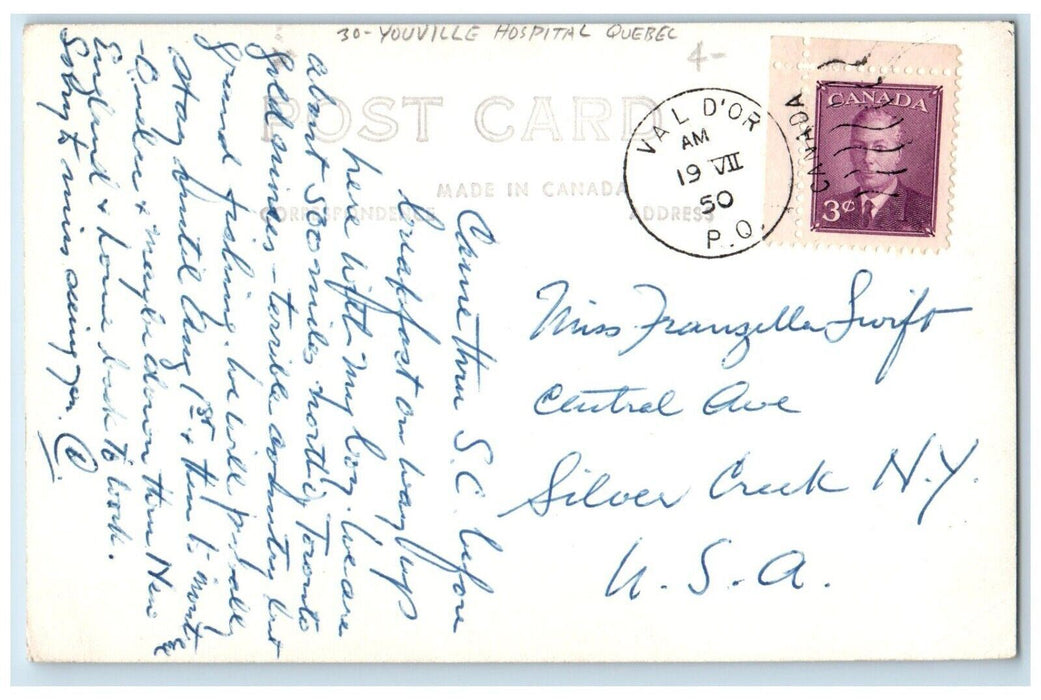 30-YOUVILLE HOSPITAL QUEBEC
4-
POST CARD
MADE IN CANADA
CORRESPONDENCE
ADDRESS
VAL D'OR
AM
19 VII
50
P.Q.
CANADA
CANADA
3¢
Came thru S.C. before
breakfast on way up
here with my boy. We are
about 500 miles north, Toronto
gold mines - terrible country but
grand fishing. We will probably
stay until Aug 1st & then to mont
& maybe down thru New
England & home back to work.
Sorry to miss seeing you.
Miss Franzella Swift
Central Ave
Silver Creek N.Y.
U.S.A.